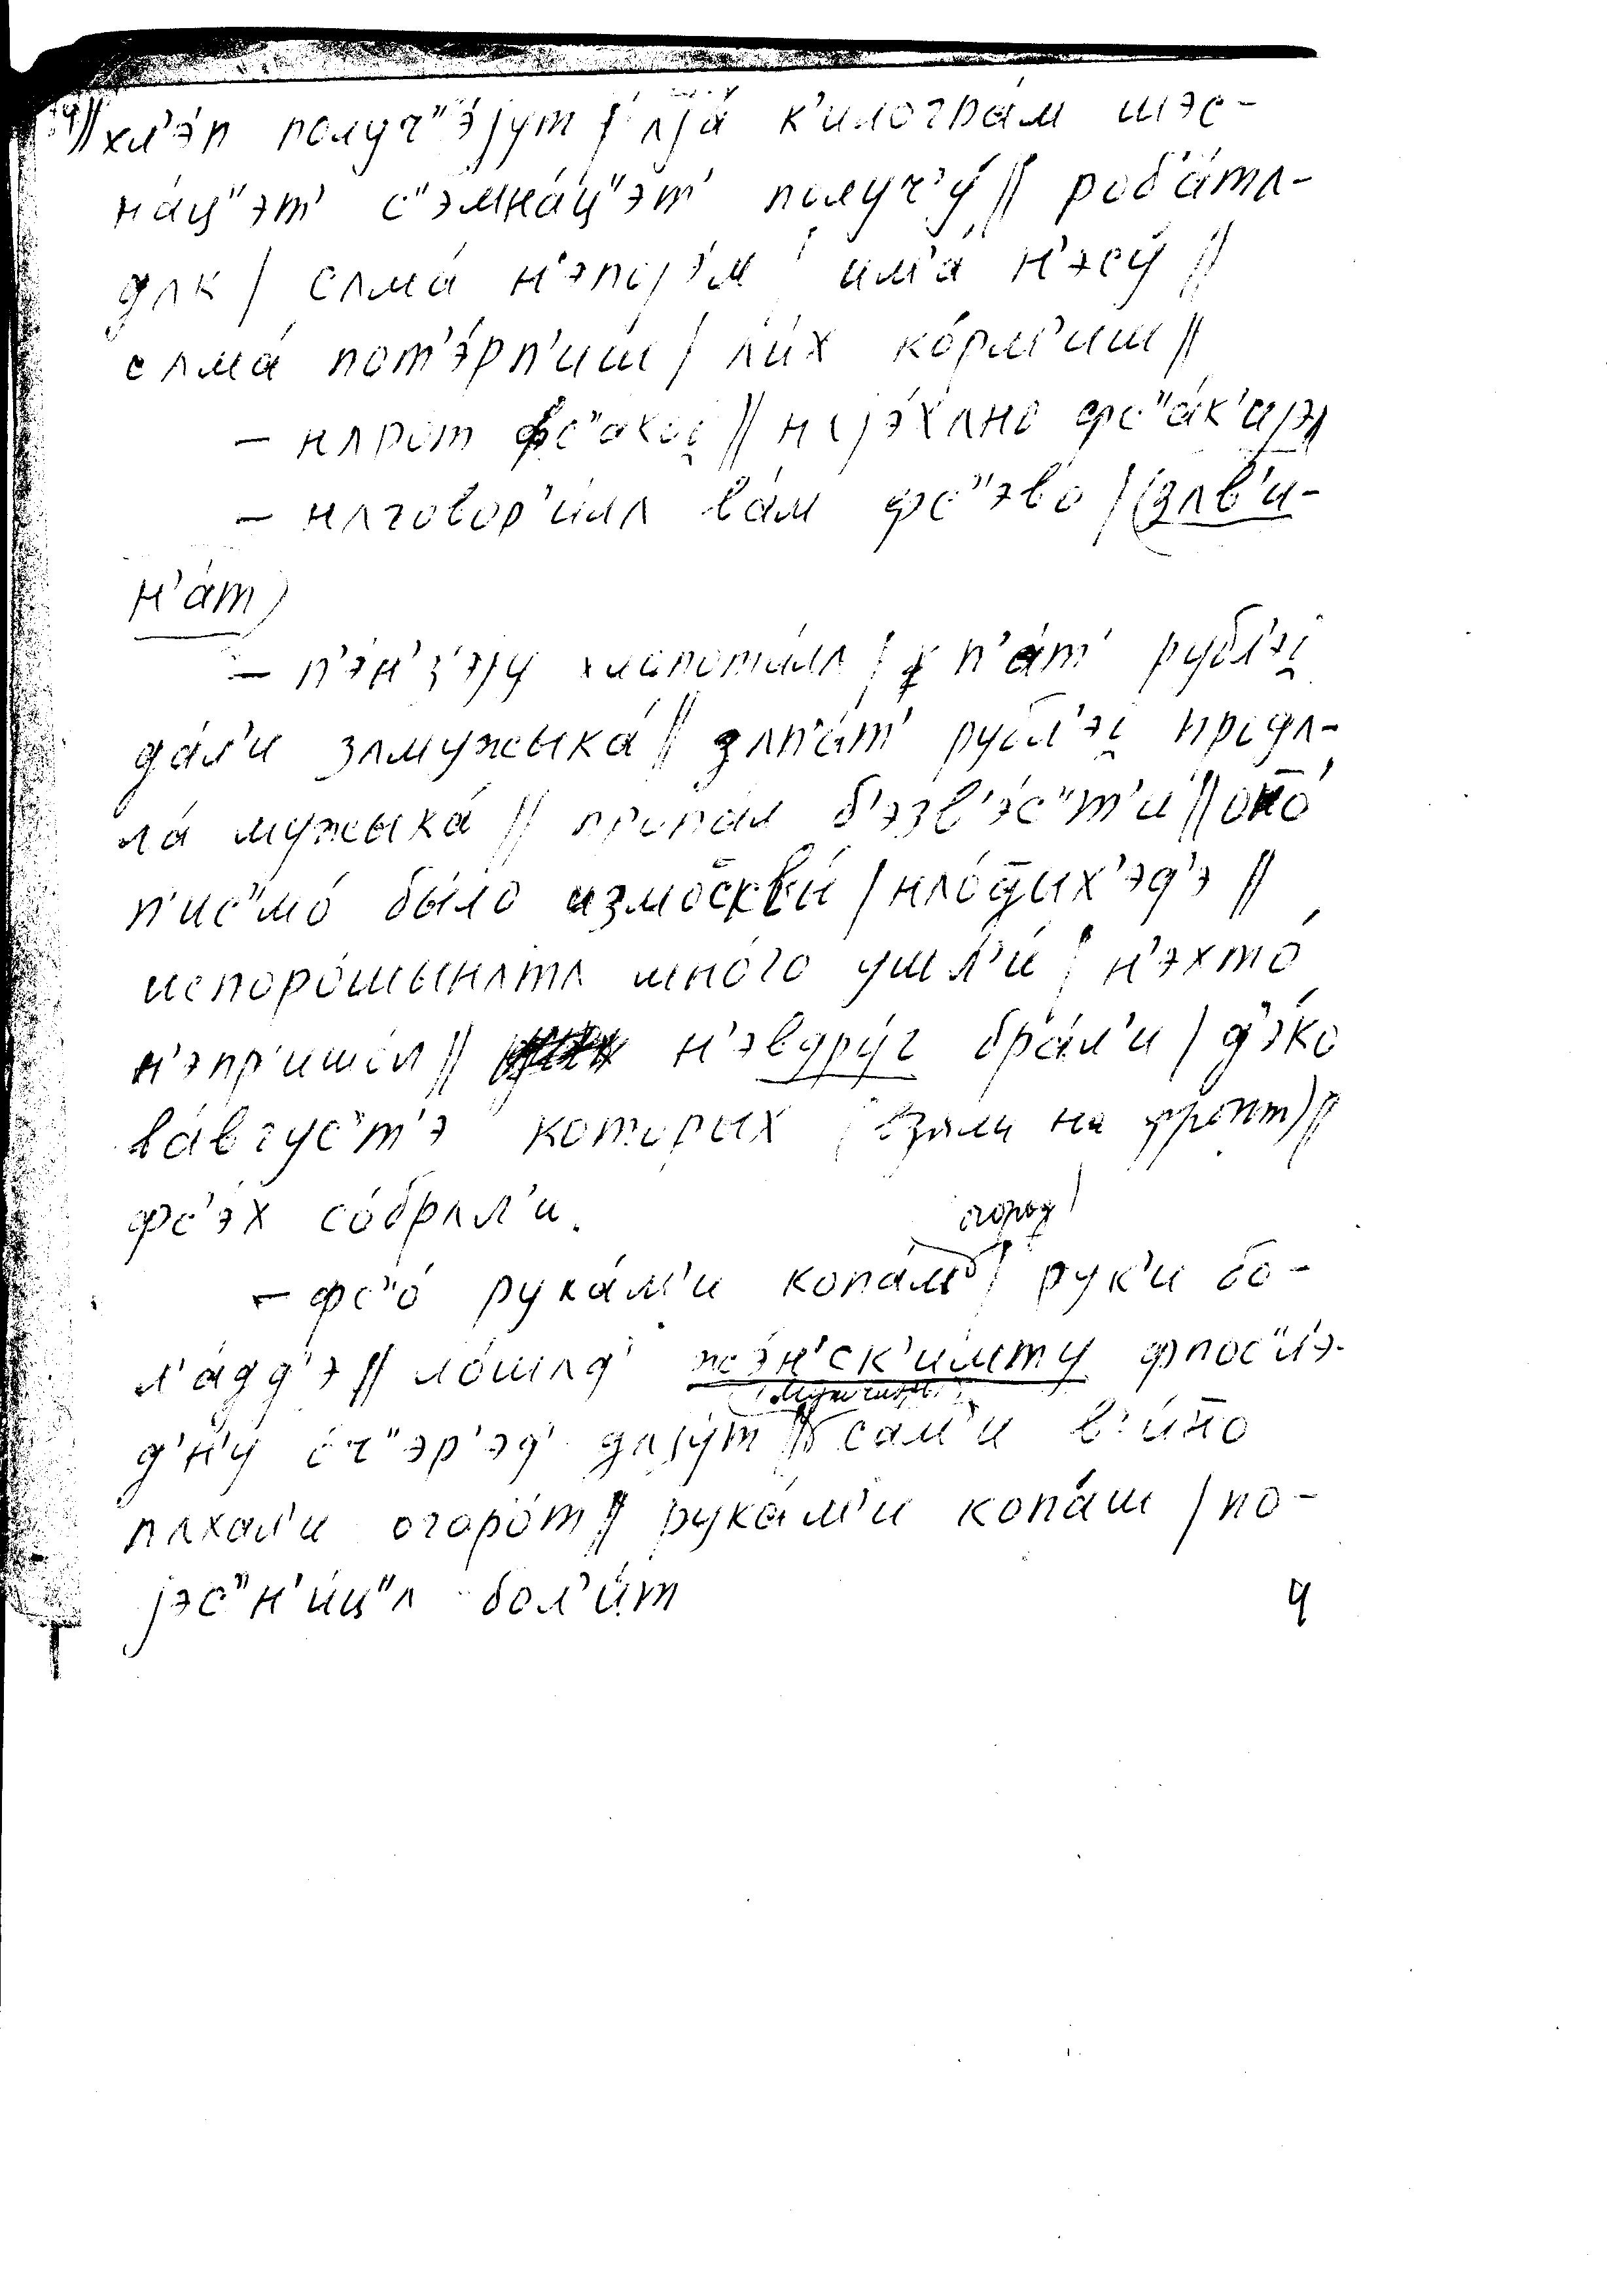 хл'э́п получ"э́jут / ʌjа́ к'илогра́м шэс-
на́ц"эт' с"эмна́ц"эт' получ'у́ // роб'а́тʌ-
дʌк / сʌма́ н'эпоjэ́м / им'а́ н'эсу́ //
сʌма́ пот'э́рп'иш / ʌи́х ко́рм'иш //
– нʌрот фс"акоi̯ // нʌjэ́хʌно фс"а́к'иjэ
– нʌговор'и́лʌ ва́м фс"эво / (зʌв'и-
н'а́т)
– п'э́н'з'эjу хлопота́лʌ / п'а́т' рубл'эi̯
да́л'и зʌмужыка́ // зʌп'а́т' рубл'эi̯ продʌ-
ла́ мужыка́ // пропа́л б'эзв'э́с"т'и // оно́
п'ис"мо́ бы́ло измосквы́ / нʌо́дых'эд'э //
испоро́шынʌтʌ мно́го ушл'и́ / н'эхто́
н'эпр'ишо́л // н'эвдру́г бра́л'и / д'э́ко
ва́вгус"т'э которых (взяли на фронт) //
фс'э́х со́брʌл'и.
огород
– фс"о́ рука́м'и копа́м / рук'и бо-
л'а́дд'э // ло́шʌд' жэ́н'ск'имту фпос"л'э-
(мужчины)
д'н'у́ о́ч"эр'эд' дʌjу́т // сам'и в'и́но
пʌхал'и огоро́т // рука́м'и копа́ш / по-
jэс"н'и́ц"ʌ бол'и́т
4